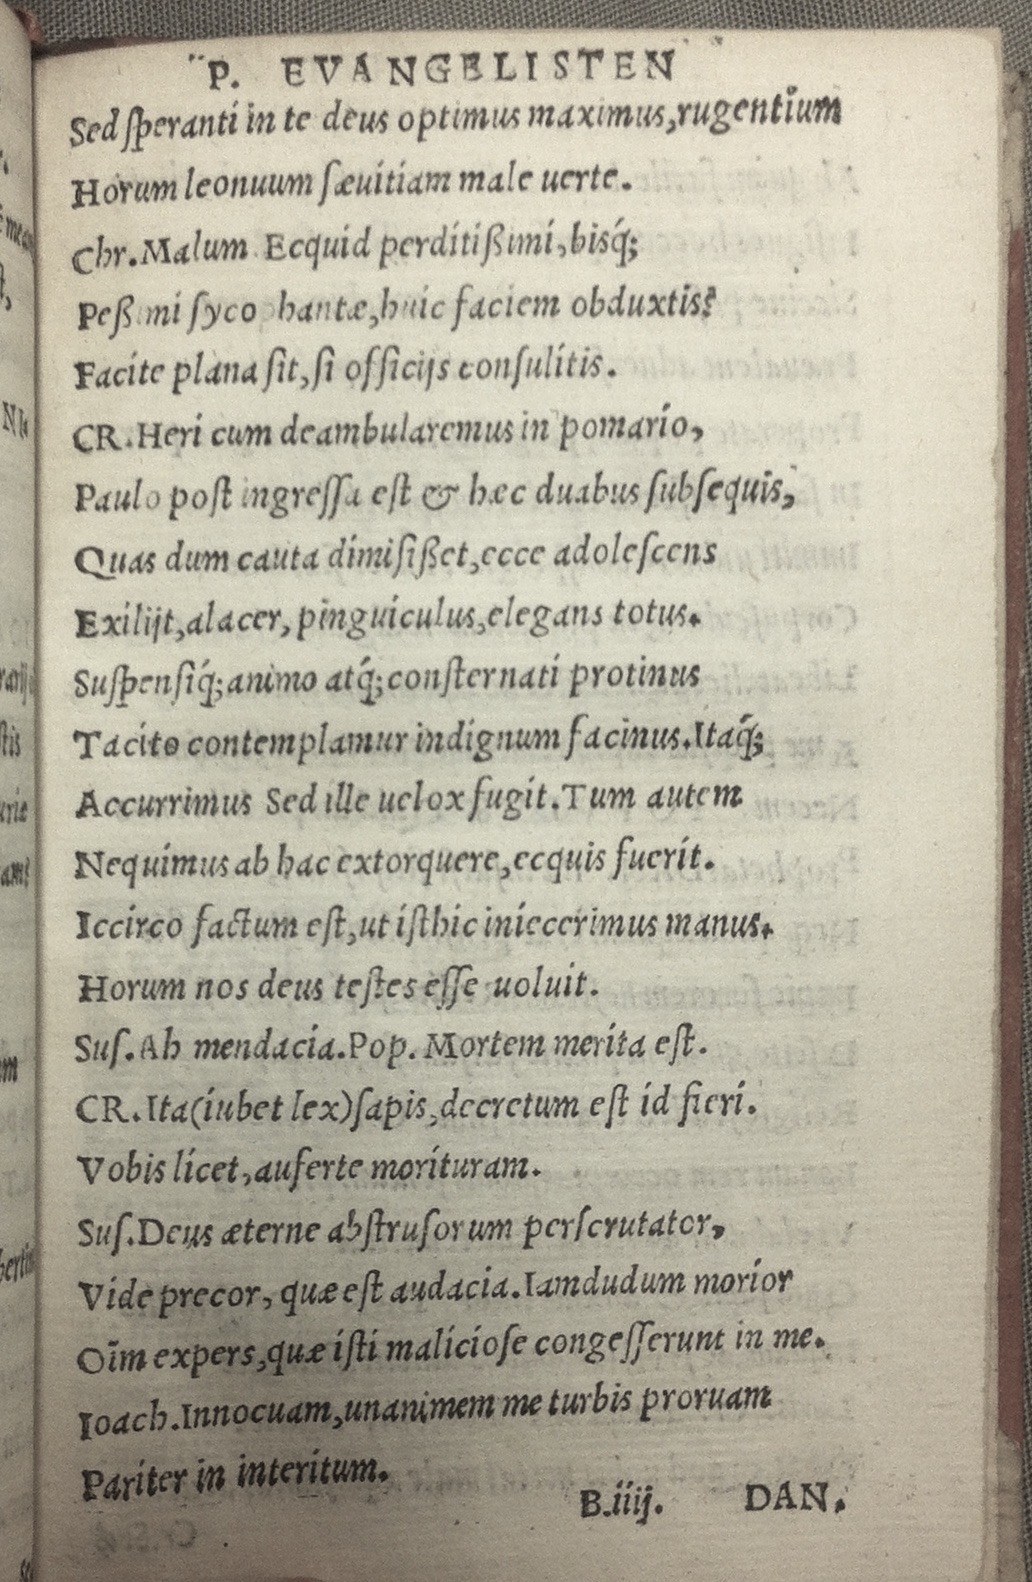 P. EVANGELISTEN
Sed ſperanti in te deus optimus maximus,rugentiũm
Horum leonuum ſæuitiam male uerte.
Chr.Malum Ecquid perditißimi,bisq́;
Peßimi ſycophantæ,huic faciem obduxtis?
Facite plana ſit,ſi officijs conſulitis.
CR.Heri cum deambularemus in pomario,
Paulo poſt ingreſſa eſt & hæc duabus ſubſequis,
Quas dum cauta dimiſißet,ecce adoleſcens
Exilijt,alacer, pinguiculus,elegans totus.
Suſpenſiq́;animo atq́;conſternati protinus
Tacito contemplamur indignum facinus.Itaq́;
Accurrimus Sed ille uelox fugit.Tum autem
Nequimus ab hac extorquere,ecquis fuerit.
Iccirco factum eſt,ut iſthic iniecerimus manus.
Horum nos deus teſtes eſſe uoluit.
Suſ.Ah mendacia.Pop. Mortem merita eſt.
CR.Ita(iubet lex)ſapis,decretum eſt id fieri.
Vobis licet,auferte morituram.
Suſ.Deus æterne abſtruſorum perſcrutator,
Vide precor, quæ eſt audacia.Iamdudum morior
Oĩm expers,quæ iſti malicioſe congeſſerunt in me.
Ioach.Innocuam,unanimem me turbis proruam
Pariter in interitum.
B.iiij. DAN.